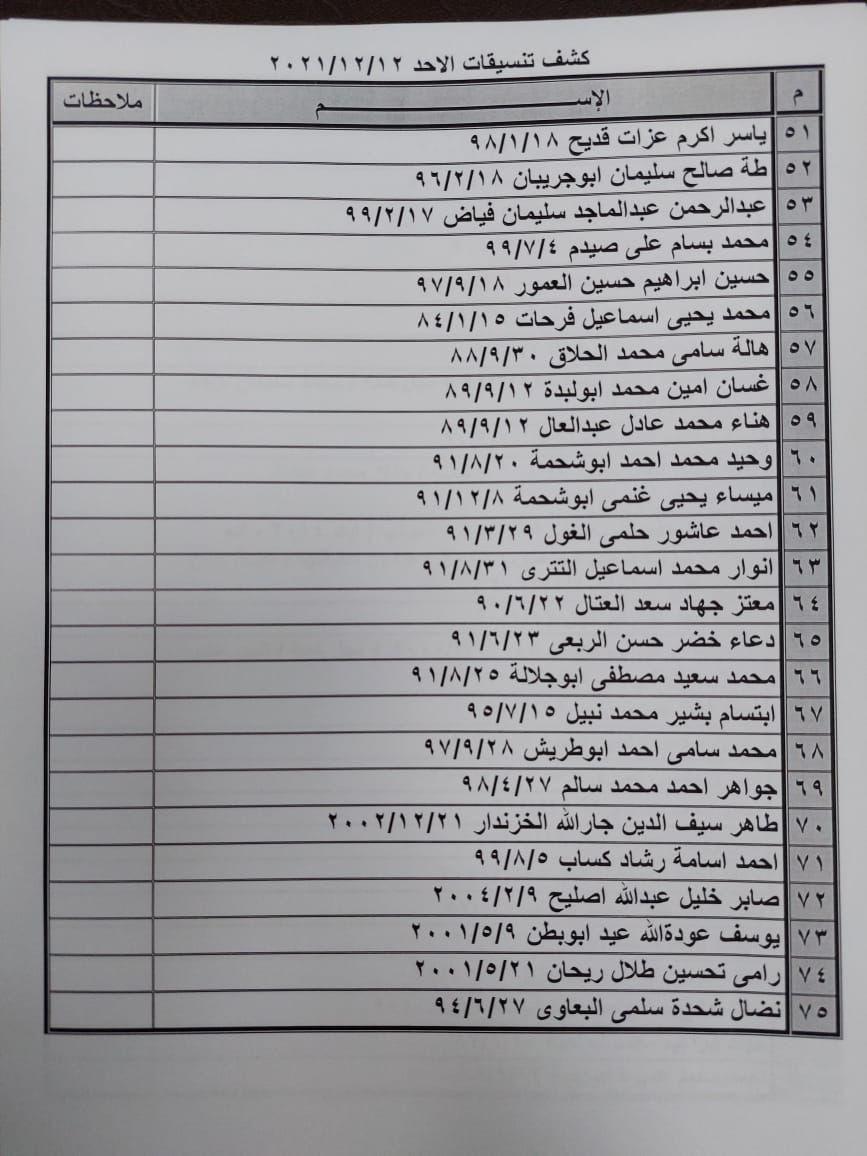 كشف تنسيقات الاحد ٢٠٢١/١٢/١٢
م الإســـــــم ملاحظات
٥١ ياسر اكرم عزات قديح ٩٨/١/١٨
٥٢ طة صالح سليمان ابوجريبان ٩٦/٢/١٨
٥٣ عبدالرحمن عبدالماجد سليمان فياض ٩٩/٢/١٧
٥٤ محمد بسام على صيدم ٩٩/٧/٤
٥٥ حسين ابراهيم حسين العمور ٩٧/٩/١٨
٥٦ محمد يحيى اسماعيل فرحات ٨٤/١/١٥
٥٧ هالة سامى محمد الحلاق ٨٨/٩/٣٠
٥٨ غسان امين محمد ابولبدة ٨٩/٩/١٢
٥٩ هناء محمد عادل عبدالعال ٨٩/٩/١٢
٦٠ وحيد محمد احمد ابوشحمة ٩١/٨/٢٠
٦١ ميساء يحيى غنمى ابوشحمة ٩١/١٢/٨
٦٢ احمد عاشور حلمى الغول ٩١/٣/٢٩
٦٣ انوار محمد اسماعيل التترى ٩١/٨/٣١
٦٤ معتز جهاد سعد العتال ٩٠/٦/٢٢
٦٥ دعاء خضر حسن الربعى ٩١/٦/٢٣
٦٦ محمد سعيد مصطفى ابوجلالة ٩١/٨/٢٥
٦٧ ابتسام بشير محمد نبيل ٩٥/٧/١٥
٦٨ محمد سامى احمد ابوطريش ٩٧/٩/٢٨
٦٩ جواهر احمد محمد سالم ٩٨/٤/٢٧
٧٠ طاهر سيف الدين جارالله الخزندار ٢٠٠٢/١٢/٢١
٧١ احمد اسامة رشاد كساب ٩٩/٨/٥
٧٢ صابر خليل عبدالله اصليح ٢٠٠٤/٢/٩
٧٣ يوسف عودةالله عيد ابوبطن ٢٠٠١/٥/٩
٧٤ رامى تحسين طلال ريحان ٢٠٠١/٥/٢١
٧٥ نضال شحدة سلمى البعاوى ٩٤/٦/٢٧